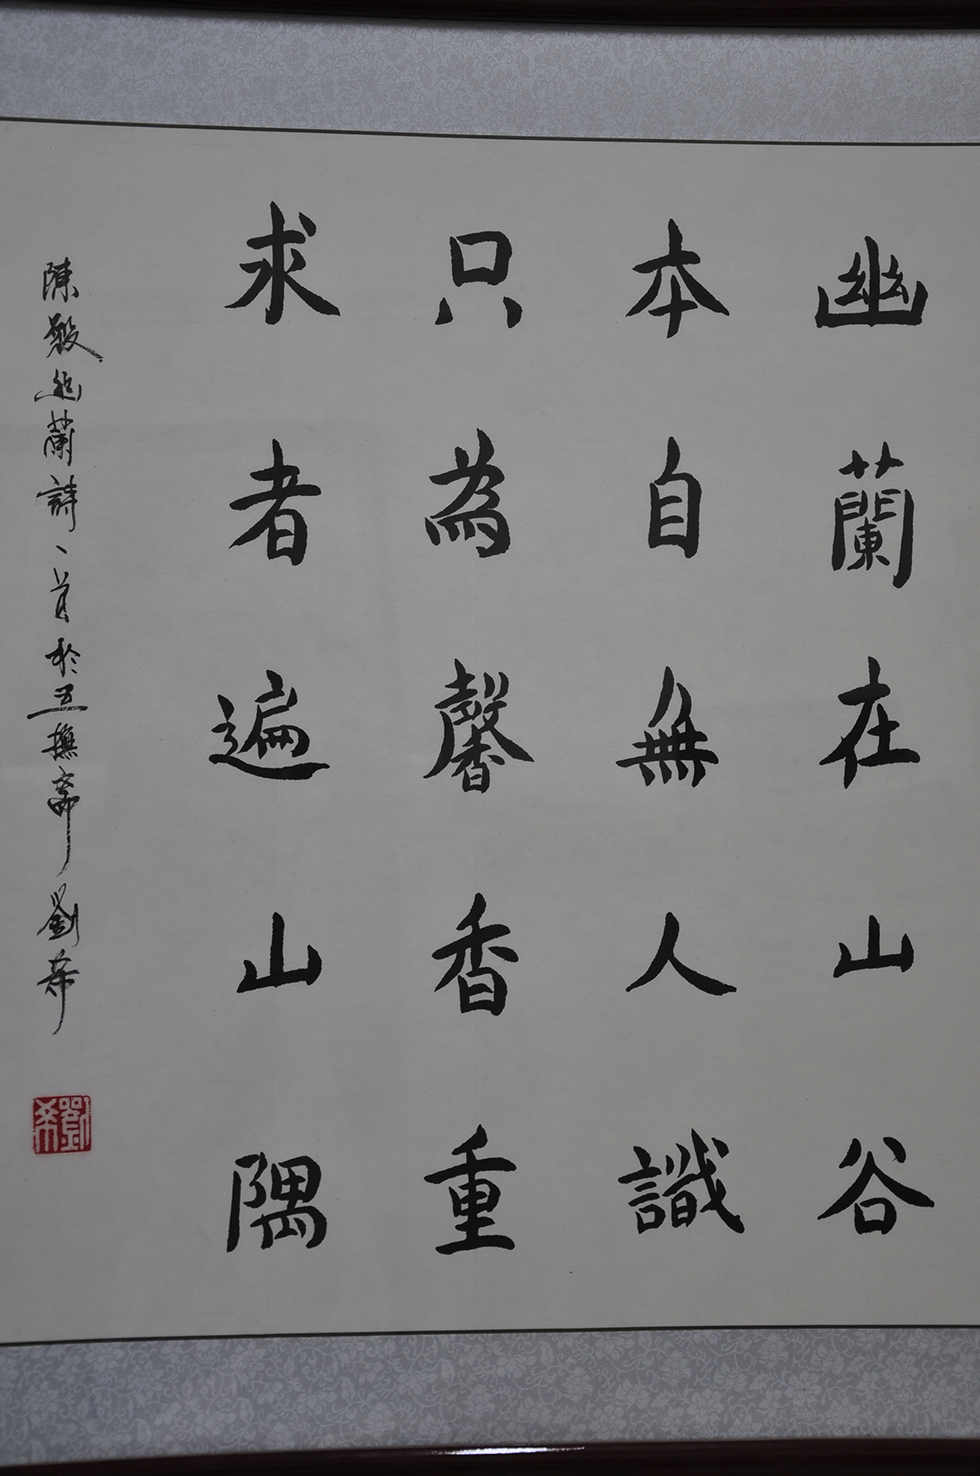 幽蘭在山谷
本自無人識
只為馨香重
求者遍山隅
陳毅幽蘭詩一首於五撫齋劉希
劉希